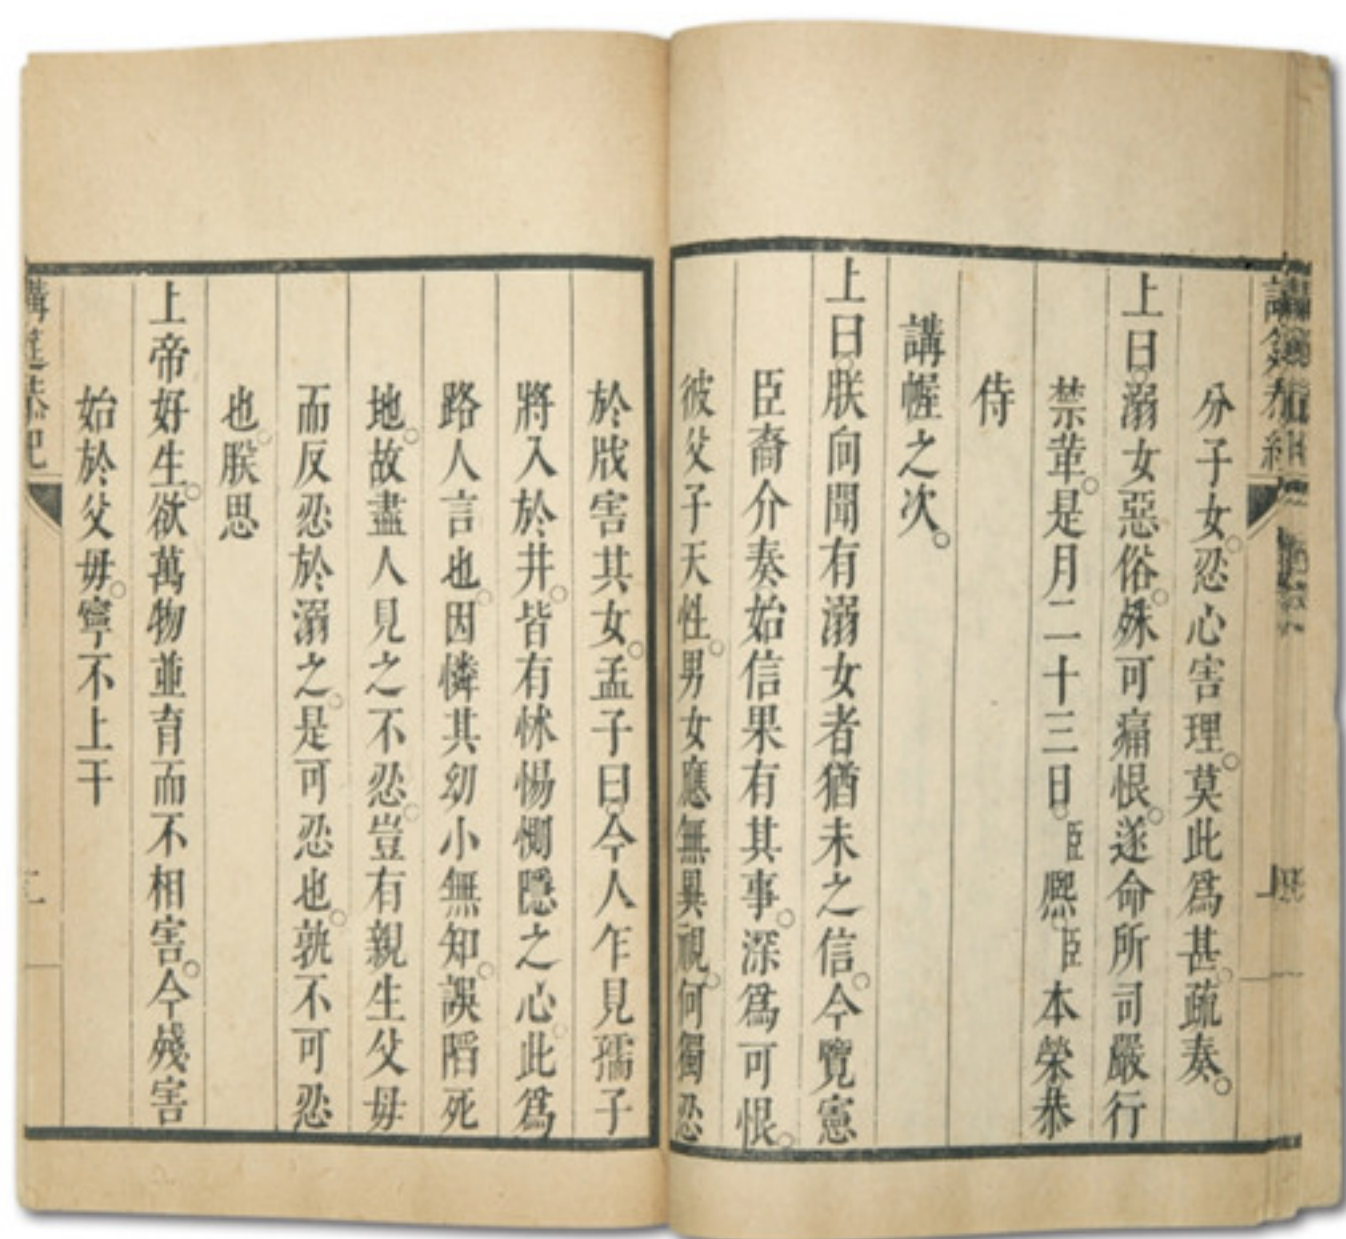 分子女。忍心害理。莫此爲甚。疏奏。
上曰。溺女惡俗。殊可痛恨。遂命所司嚴行
禁革。是月二十三日。臣熙。臣本榮恭
侍
講幄之次。
上曰。朕向聞有溺女者猶未之信。今覽憲
臣裔介奏始信果有其事。深爲可恨。
彼父子天性。男女應無異視。何獨忍
於戕害其女。孟子曰。今人乍見孺子
將入於井。皆有怵惕惻隱之心。此爲
路人言也。因憐其幼小無知。誤陷死
地。故盡人見之不忍。豈有親生父母
而反忍於溺之。是可忍也。孰不可忍
也。朕思
上帝好生。欲萬物並育而不相害。今殘害
始於父母。寧不上干